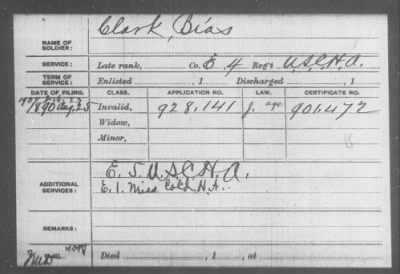 NAME OF SOLDIER: Clark, Bias
SERVICE: Late rank, Co. E 4 Reg't U.S.C.H.A.
TERM OF SERVICE: Enlisted , 1 Discharged , 1
DATE OF FILING. CLASS. APPLICATION NO. LAW. CERTIFICATE NO.
1907
1890 Aug. 25 Invalid, 928.141 J. age 901.472
Widow,
Minor,
ADDITIONAL SERVICES: E. 5. U.S.C.H.A.
E. 1. Miss Cold. H.A.
REMARKS:
Died , 1 , at